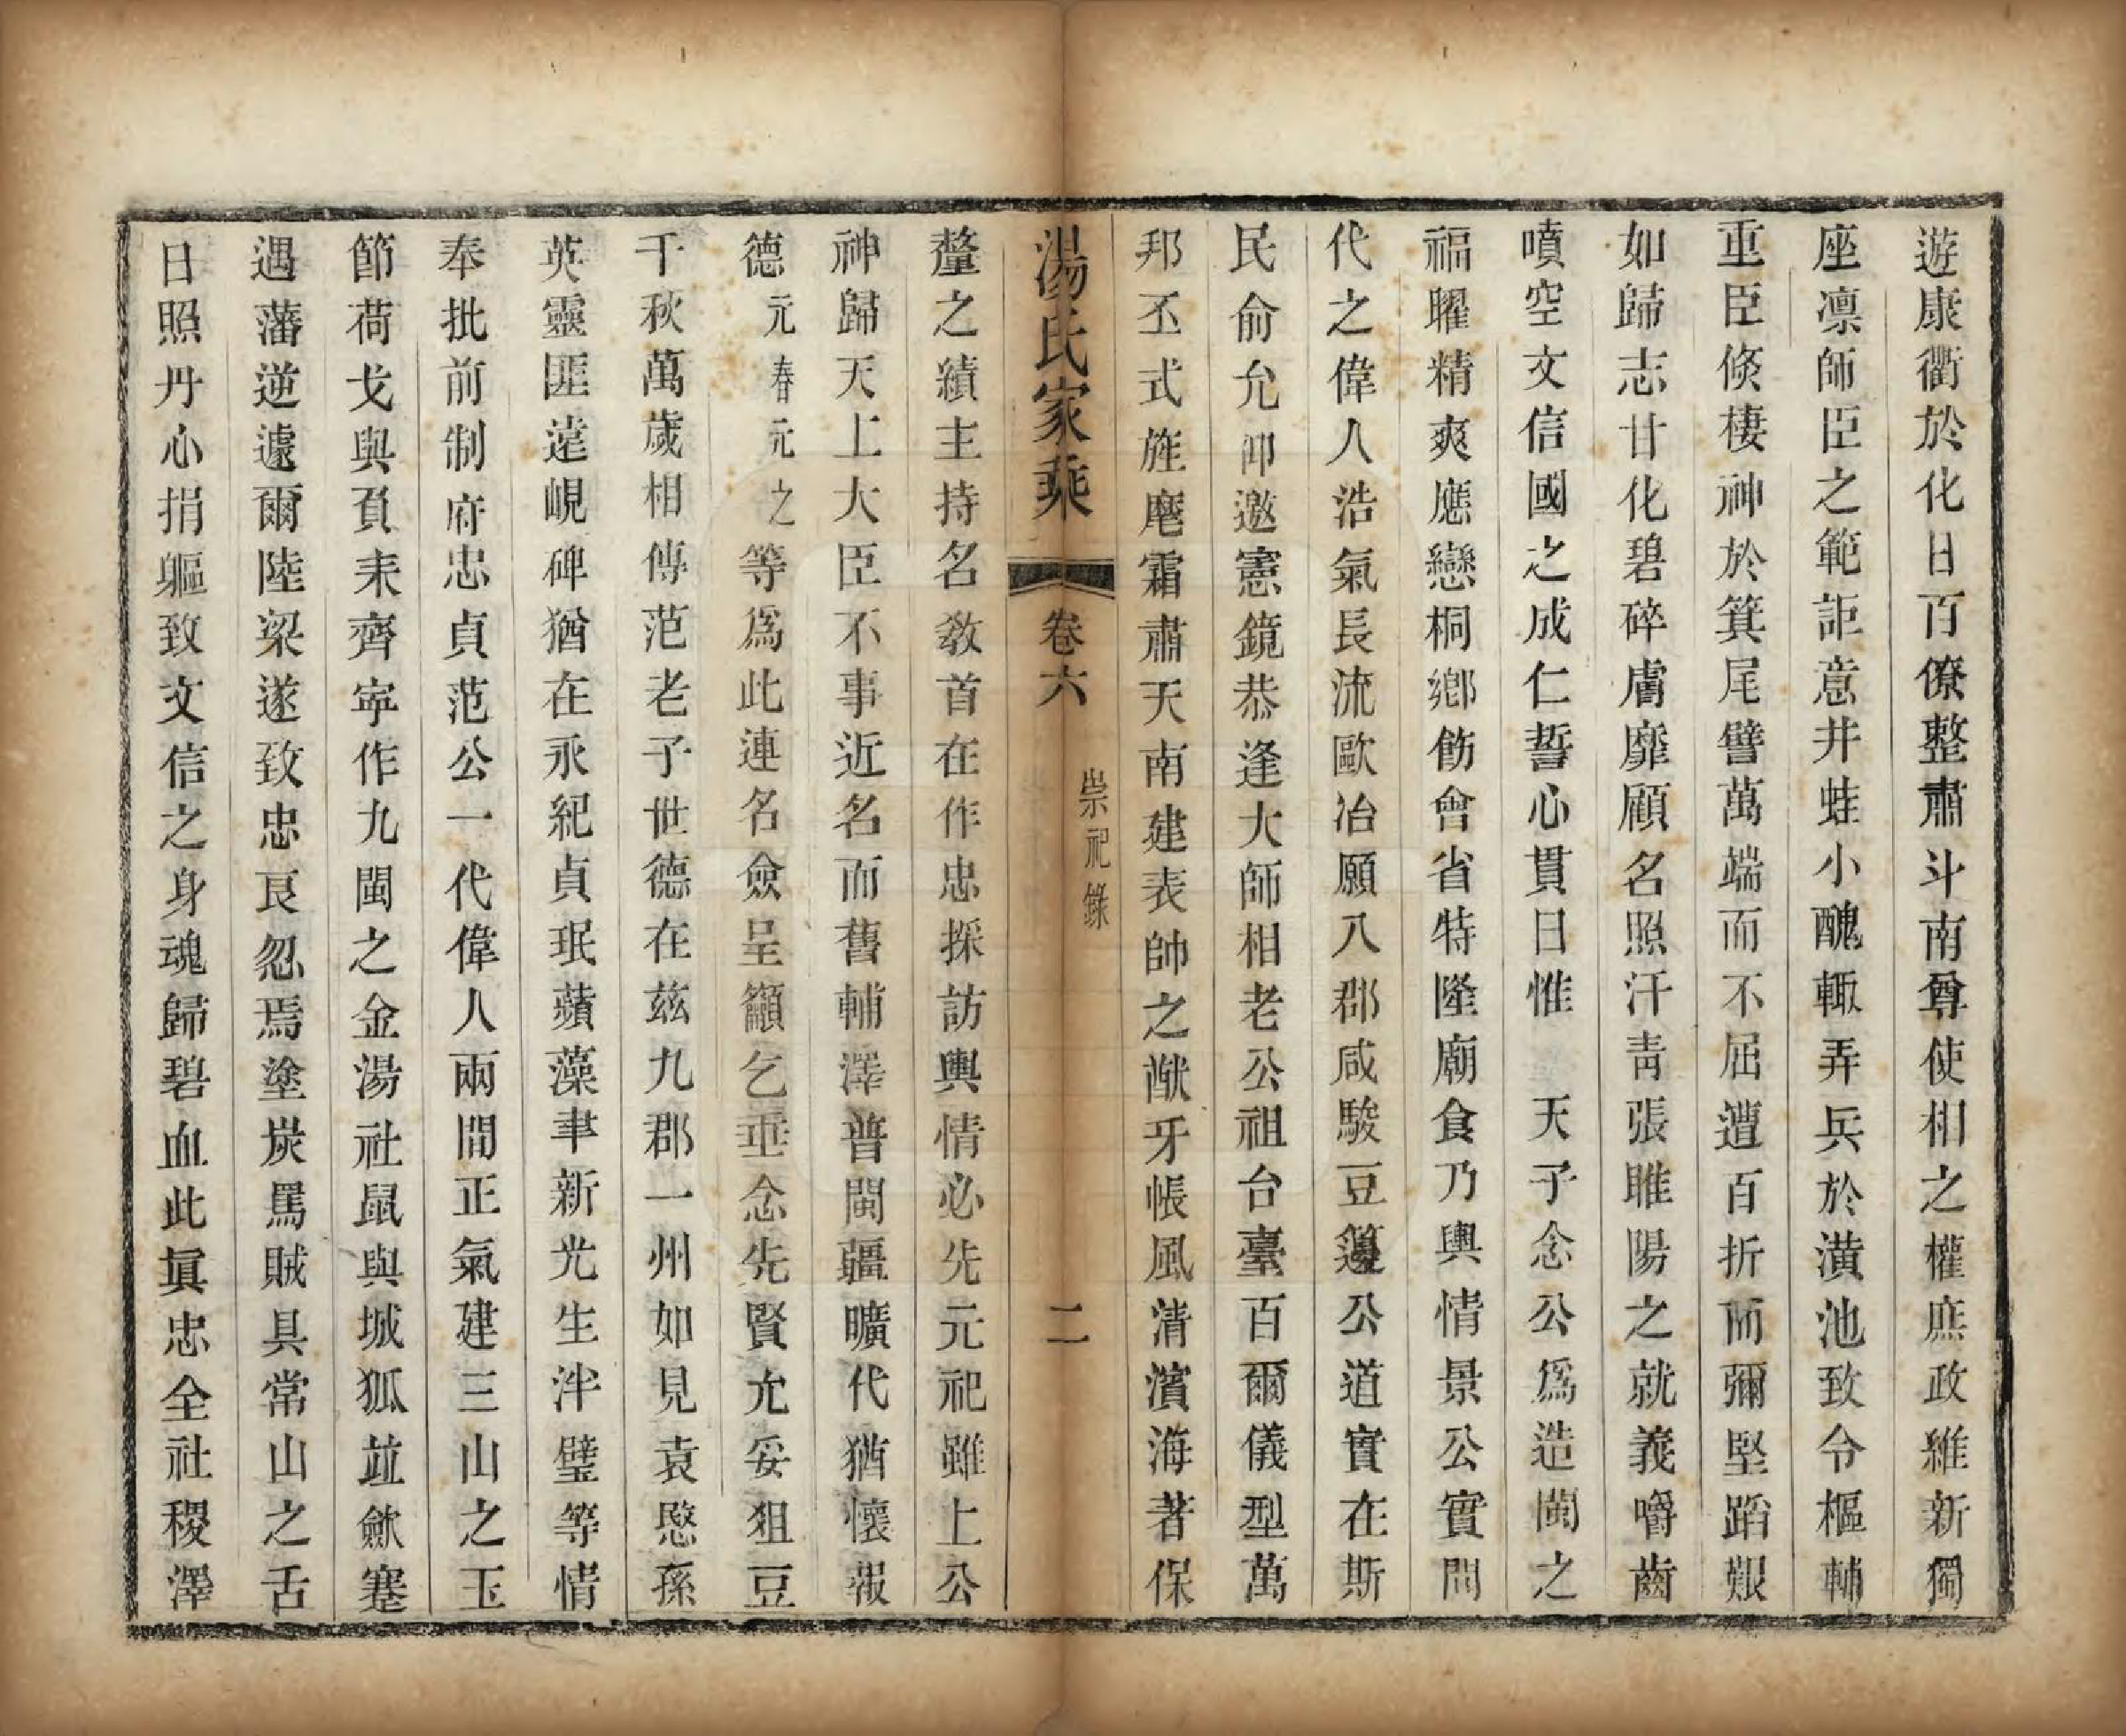 遊康衢於化日百僚整肅斗南尊使相之權庶政維新獨
座凛師臣之範詎意井蛙小醜輙弄兵於潢池致令樞輔
重臣倐棲神於箕尾譬萬端而不屈遭百折而彌堅蹈艱
如歸志甘化碧碎膚靡顧名照汗青張睢陽之就義嚼齒
噴空文信國之成仁誓心貫日惟 天子念公爲造閩之
福曜精爽應戀桐鄉飭會省特隆廟食乃輿情景公實間
代之偉人浩氣長流歐冶願八郡咸駿豆籩公道實在斯
民俞允仰邀憲鏡恭逢大師相老公祖台臺百爾儀型萬
邦丕式旌麾霜肅天南建表帥之猷牙帳風清濱海著保
湯氏家乘 卷六 崇祀錄 二
釐之績主持名敎首在作忠採訪輿情必先元祀雖上公
神歸天上大臣不事近名而舊輔澤普閩疆曠代猶懷報
德元春元之等爲此連名僉呈籲乞垂念先賢允妥俎豆
千秋萬歲相傳范老子世德在兹九郡一州如見袁愍孫
英靈匪遠峴碑猶在永紀貞珉蘋藻聿新光生泮璧等情
奉批前制府忠貞范公一代偉人兩間正氣建三山之玉
節荷戈與負耒齊寧作九閩之金湯社鼠與城狐竝歛蹇
遇藩逆遽爾陸梁遂致忠良忽焉塗炭罵賊具常山之舌
日照丹心捐軀致文信之身魂歸碧血此眞忠全社稷澤